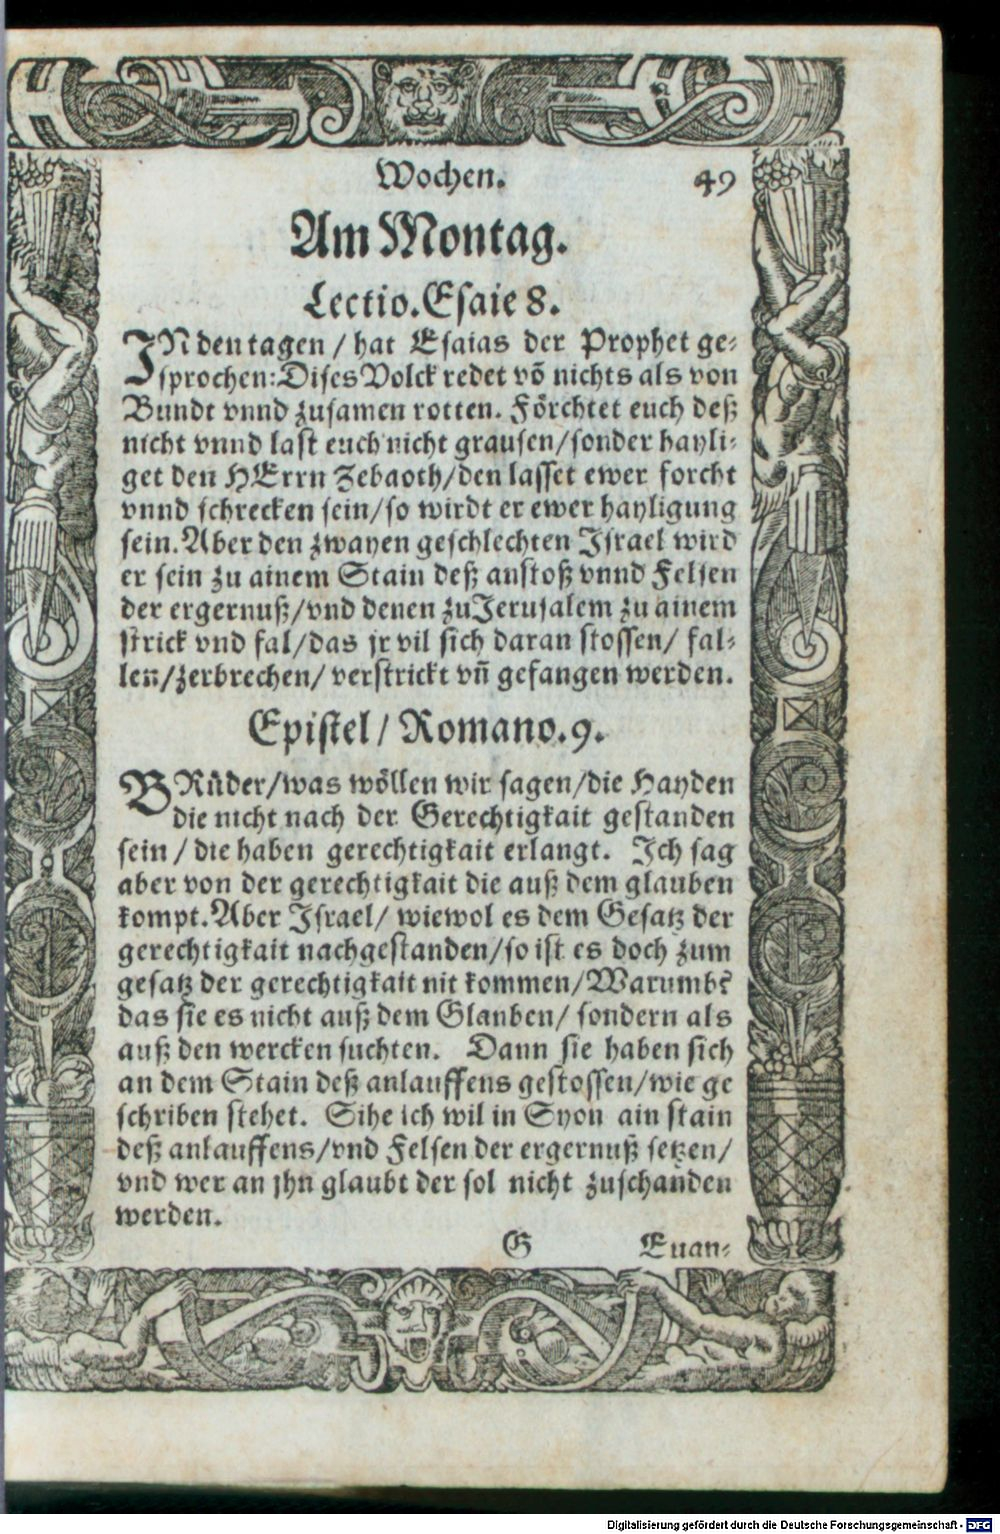 Wochen. 49
Am Montag.
Lectio. Esaie 8.
JN den tagen / hat Esaias der Prophet ge-
sprochen: Dises Volck redet võ nichts als von
Bundt vnnd zusamen rotten. Förchtet euch deß
nicht vnnd last euch nicht grausen/sonder hayli-
get den HErrn Zebaoth/den lasset ewer forcht
vnnd schrecken sein/so wirdt er ewer hayligung
sein. Aber den zwayen geschlechten Israel wird
er sein zu ainem Stain deß anstoß vnnd Felsen
der ergernuß/vnd denen zu Jerusalem zu ainem
strick vnd fal/das jr vil sich daran stossen/ fal-
len/zerbrechen/ verstrickt vñ gefangen werden.
Epistel / Romano. 9.
BRüder/was wöllen wir sagen/die Hayden
die nicht nach der Gerechtigkait gestanden
sein / die haben gerechtigkait erlangt. Ich sag
aber von der gerechtigkait die auß dem glauben
kompt. Aber Israel/ wiewol es dem Gesatz der
gerechtigkait nachgestanden/so ist es doch zum
gesatz der gerechtigkait nit kommen/Warumb?
das sie es nicht auß dem Glauben/ sondern als
auß den wercken suchten. Dann sie haben sich
an dem Stain deß anlauffens gestossen/wie ge
schriben stehet. Sihe ich wil in Syon ain stain
deß anlauffens/vnd Felsen der ergernuß setzen/
vnd wer an jhn glaubt der sol nicht zuschanden
werden.
G Euan-
Digitalisierung gefördert durch die Deutsche Forschungsgemeinschaft - DFG